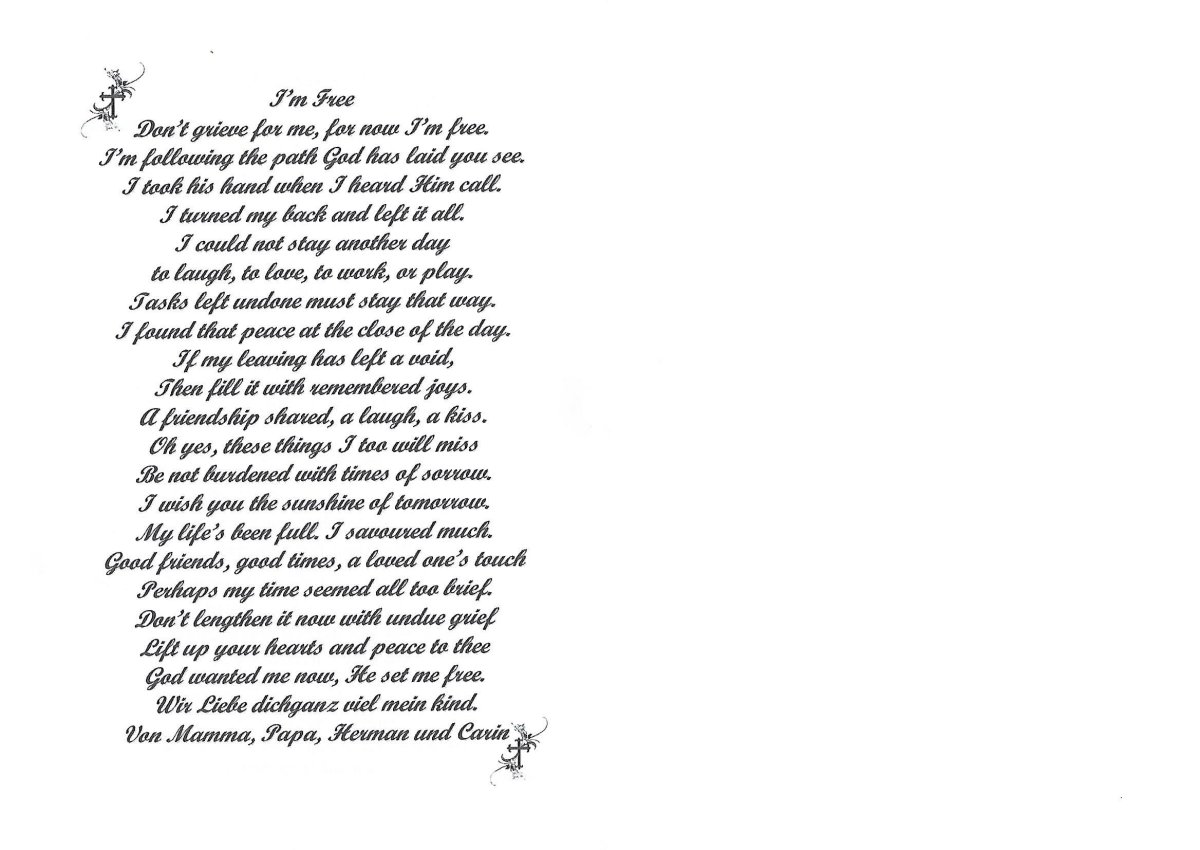 I'm Free
Don't grieve for me, for now I'm free.
I'm following the path God has laid you see.
I took his hand when I heard Him call.
I turned my back and left it all.
I could not stay another day
to laugh, to love, to work, or play.
Tasks left undone must stay that way.
I found that peace at the close of the day.
If my leaving has left a void,
Then fill it with remembered joys.
A friendship shared, a laugh, a kiss.
Oh yes, these things I too will miss
Be not burdened with times of sorrow.
I wish you the sunshine of tomorrow.
My life's been full. I savoured much.
Good friends, good times, a loved one's touch
Perhaps my time seemed all too brief.
Don't lengthen it now with undue grief
Lift up your hearts and peace to thee
God wanted me now, He set me free.
Wir Liebe dichganz viel mein kind.
Von Mamma, Papa, Herman und Carin